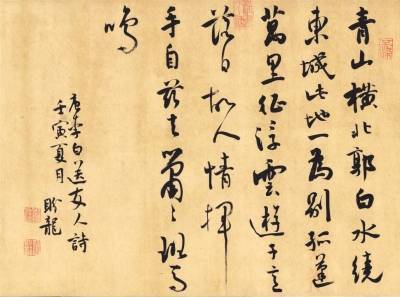 青山橫北郭白水繞
東城此地一為別孤蓬
萬里征浮雲遊子意
落日故人情揮
手自茲去蕭々班馬
鳴
唐李白送友人詩
壬寅夏月
龍